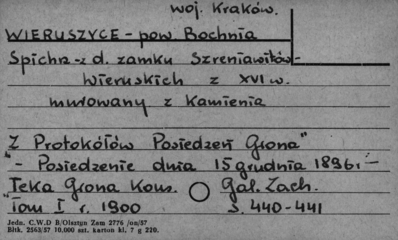 woj. Kraków.
WIERUSZYCE - pow. Bochnia
Spichrz - z d. zamku Szreniawitów-
Wieruskich z XVI w.
murowany z kamienia
Z Protokółów Posiedzeń Grona"
"- Posiedzenie dnia 15 grudnia 1896 r. -
Teka Grona Kons. Gal. Zach.
"Tom I r. 1900 s. 440-441
Jedn. C.W.D B/Olsztyn Zam 2776 /on/57
Bltk. 2563/57 10.000 szt. karton kl, 7 g 220.